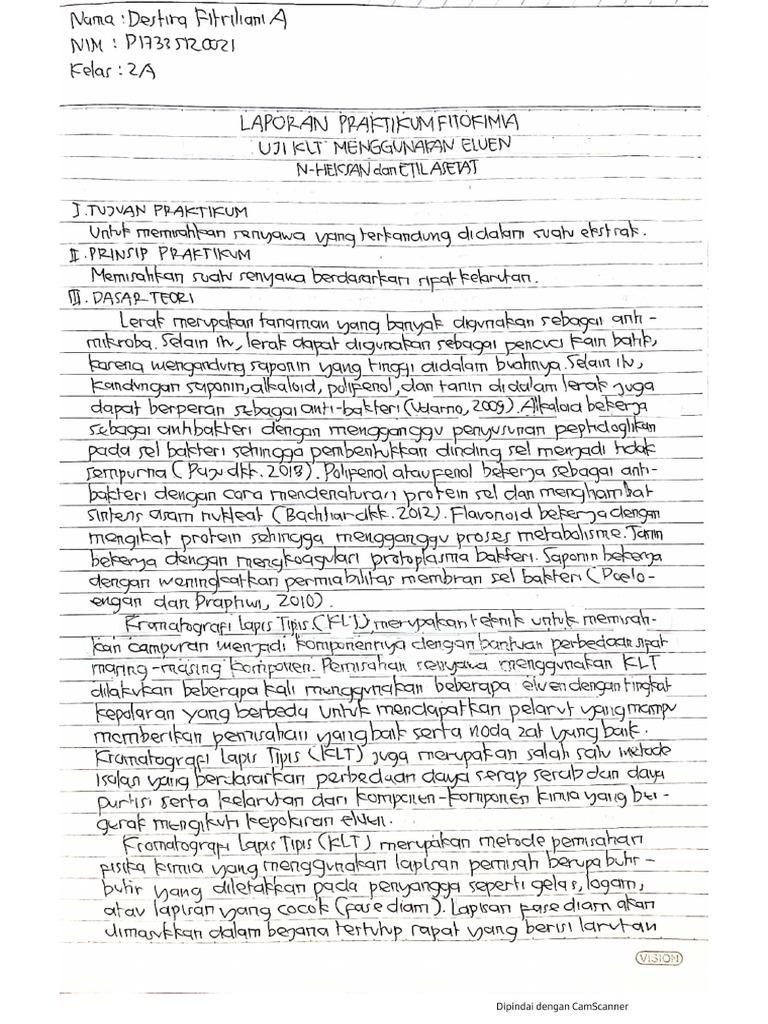 Nama : Destira Fitriliani A
NIM : P17335120021
Kelas : 2A
LAPORAN PRAKTIKUM FITOKIMIA
UJI KLT MENGGUNAKAN ELUEN
N-HEKSAN dan ETIL ASETAT
I. TUJUAN PRAKTIKUM
Untuk memisahkan senyawa yang terkandung didalam suatu ekstrak.
II. PRINSIP PRAKTIKUM
Memisahkan suatu senyawa berdasarkan sifat kelarutan.
III. DASAR TEORI
Lerak merupakan tanaman yang banyak digunakan sebagai anti-
mikroba. Selain itu, lerak dapat digunakan sebagai pencuci kain batik,
karena mengandung saponin yang tinggi didalam buahnya. Selain itu,
kandungan saponin, alkaloid, polifenol, dan tanin didalam lerak juga
dapat berperan sebagai anti-bakteri (Udarno, 2009). Alkaloid bekerja
sebagai antibakteri dengan mengganggu penyusunan peptidoglikan
pada sel bakteri sehingga pembentukkan dinding sel menjadi tidak
sempurna (Puju dkk. 2018). Polifenol atau fenol bekerja sebagai anti-
bakteri dengan cara mendenaturasi protein sel dan menghambat
sintesis asam nukleat (Bachtiar dkk. 2012). Flavonoid bekerja dengan
mengikat protein sehingga mengganggu proses metabolisme. Tanin
bekerja dengan mengkoagulasi protoplasma bakteri. Saponin bekerja
dengan meningkatkan permiabilitas membran sel bakteri (Poelo-
engan dan Praptiwi, 2010).
Kromatografi Lapis Tipis (KLT), merupakan teknik untuk memisah-
kan campuran menjadi komponennya dengan bantuan perbedaan sifat
masing-masing komponen. Pemisahan senyawa menggunakan KLT
dilakukan beberapa kali menggunakan beberapa eluen dengan tingkat
kepolaran yang berbeda untuk mendapatkan pelarut yang mampu
memberikan pemisahan yang baik serta noda zat yang baik.
Kromatografi Lapis Tipis (KLT) juga merupakan salah satu metode
isolasi yang berdasarkan perbedaan daya serap serab dan daya
partisi serta kelarutan dari komponen-komponen kimia yang ber-
gerak mengikuti kepolaran eluen.
Kromatografi Lapis Tipis (KLT) merupakan metode pemisahan
fisika kimia yang menggunakan lapisan pemisah berupa butir-
butir yang diletakkan pada penyangga seperti gelas, logam,
atau lapisan yang cocok (fase diam). Lapisan fase diam akan
dimasukkan dalam bejana tertutup rapat yang berisi larutan
VISION
Dipindai dengan CamScanner